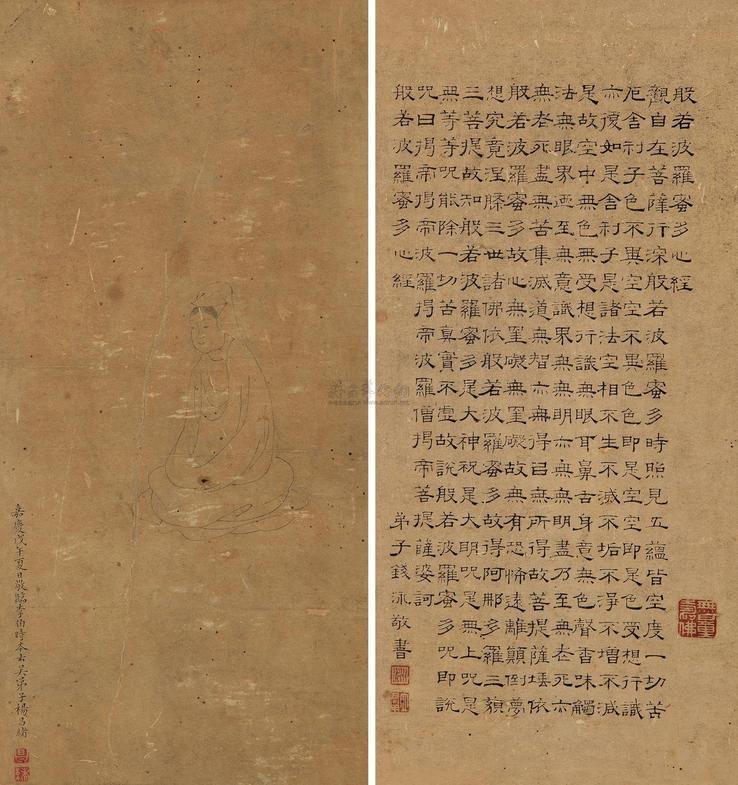 般若波羅蜜多心經
觀自在菩薩行深般若波羅蜜多時照見五蘊皆空度一切苦
厄舍利子色不異空空不異色色即是空空即是色受想行識
亦復如是舍利子是諸法空相不生不滅不垢不淨不增不減
是故空中無色無受想行識無眼耳鼻舌身意無色聲香味觸
法無眼界乃至無意識界無無明亦無無明盡乃至無老死亦
無老死盡無苦集滅道無智亦無得㠯無所得故菩提薩埵依
般若波羅蜜多故心無罣礙無罣礙故無有恐怖遠離顛倒夢
想究竟涅槃三世諸佛依般若波羅蜜多故得阿耨多羅三藐
三菩提故知般若波羅蜜多是大神祝是大明咒是無上咒是
無等等咒能除一切苦真實不虛故說般若波羅蜜多咒即說
咒曰揭帝揭帝波羅揭帝波羅僧揭帝菩提薩婆訶
般若波羅蜜多心經
弟子錢泳敬書
無量壽佛
嘉慶戊午夏日敬臨李伯時本古吳弟子楊昌緒